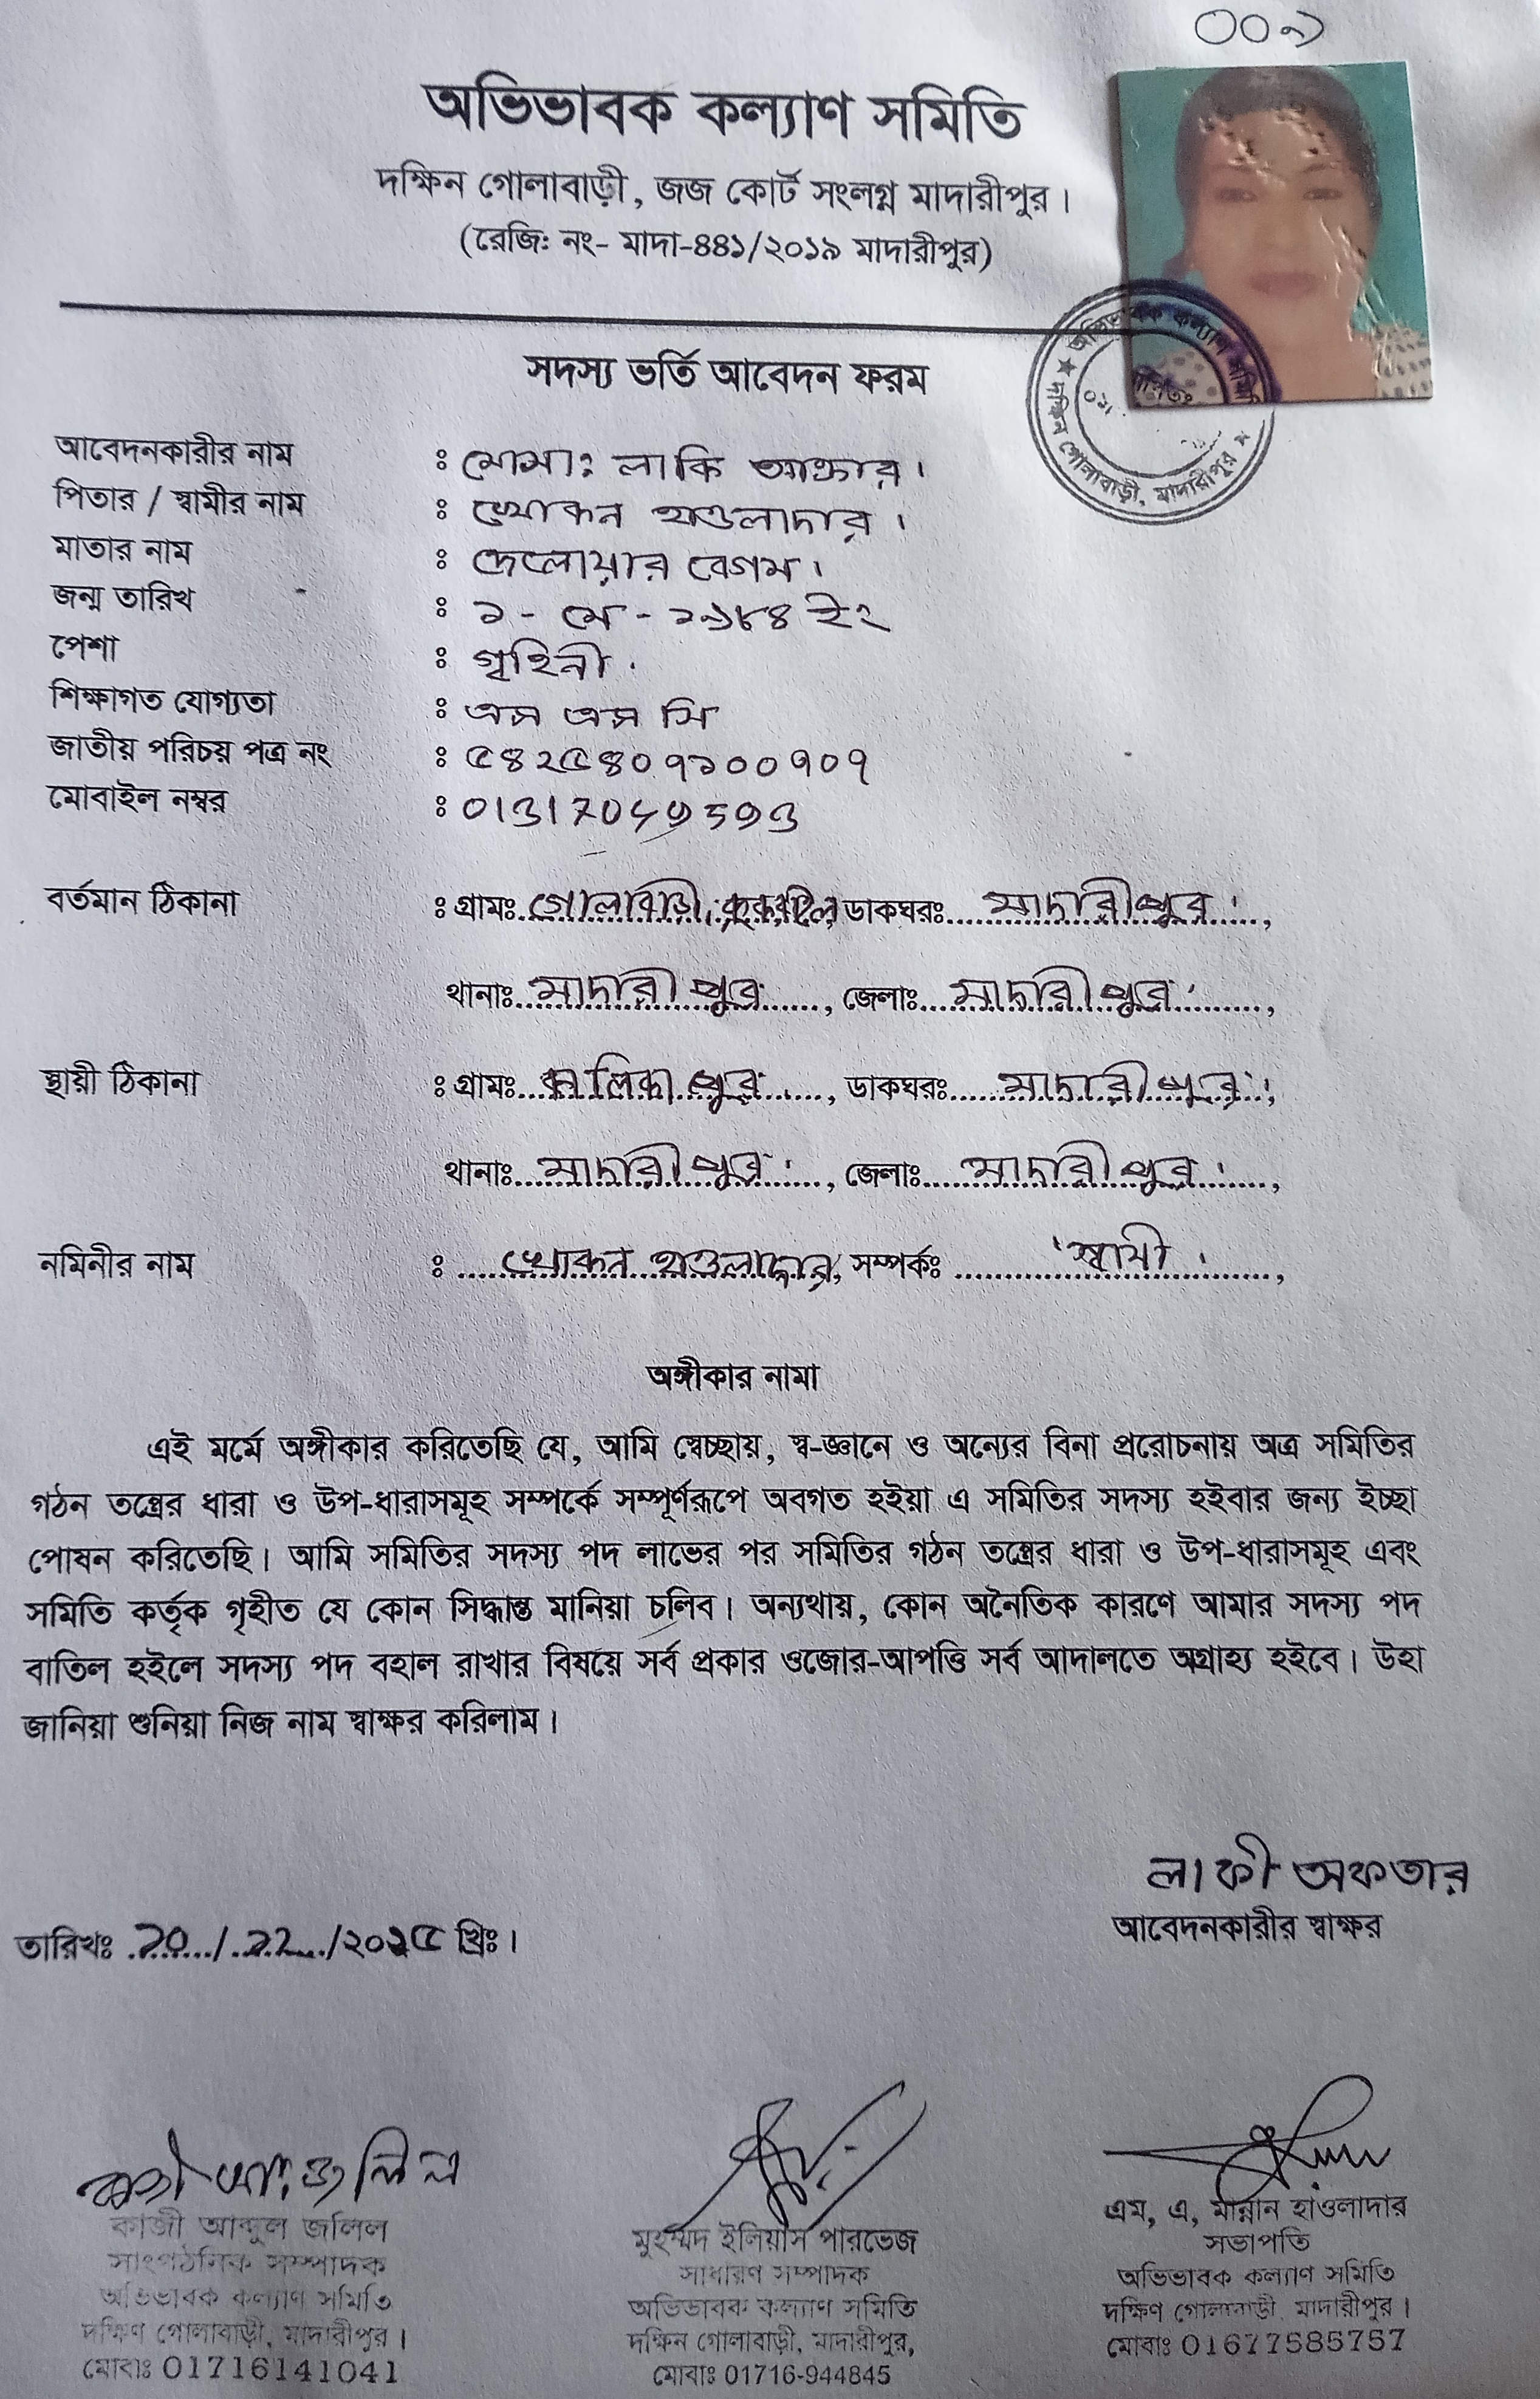 ০০৯
অভিভাবক কল্যাণ সমিতি
দক্ষিন গোলাবাড়ী, জজ কোর্ট সংলগ্ন মাদারীপুর।
(রেজি: নং- মাদা-৪৪১/২০১৯ মাদারীপুর)
অভিভাবক কল্যাণ সমিতি
দক্ষিন গোলাবাড়ী, মাদারীপুর
সদস্য ভর্তি আবেদন ফরম
আবেদনকারীর নাম : মোসা: লাকি আক্তার।
পিতার / স্বামীর নাম : খোকন হাওলাদার।
মাতার নাম : দেলোয়ার বেগম।
জন্ম তারিখ : ১ - মে - ১৯৮৪ ইং
পেশা : গৃহিনী।
শিক্ষাগত যোগ্যতা : এস এস সি
জাতীয় পরিচয় পত্র নং : ৫৪২৫৪০৭১০০৭০৭
মোবাইল নম্বর :
বর্তমান ঠিকানা : গ্রামঃ গোলাবাড়ী, ডাকঘরঃ মাদারীপুর।,
থানাঃ মাদারীপুর, জেলাঃ মাদারীপুর।,
স্থায়ী ঠিকানা : গ্রামঃ কালিকাপুর, ডাকঘরঃ মাদারীপুর।,
থানাঃ মাদারীপুর।, জেলাঃ মাদারীপুর।,
নমিনীর নাম : খোকন হাওলাদার, সম্পর্কঃ স্বামী।,
অঙ্গীকার নামা
এই মর্মে অঙ্গীকার করিতেছি যে, আমি স্বেচ্ছায়, স্ব-জ্ঞানে ও অন্যের বিনা প্ররোচনায় অত্র সমিতির
গঠন তন্ত্রের ধারা ও উপ-ধারাসমূহ সম্পর্কে সম্পূর্ণরূপে অবগত হইয়া এ সমিতির সদস্য হইবার জন্য ইচ্ছা
পোষন করিতেছি। আমি সমিতির সদস্য পদ লাভের পর সমিতির গঠন তন্ত্রের ধারা ও উপ-ধারাসমূহ এবং
সমিতি কর্তৃক গৃহীত যে কোন সিদ্ধান্ত মানিয়া চলিব। অন্যথায়, কোন অনৈতিক কারণে আমার সদস্য পদ
বাতিল হইলে সদস্য পদ বহাল রাখার বিষয়ে সর্ব প্রকার ওজোর-আপত্তি সর্ব আদালতে অগ্রাহ্য হইবে। উহা
জানিয়া শুনিয়া নিজ নাম স্বাক্ষর করিলাম।
লাকী অকতার
আবেদনকারীর স্বাক্ষর
তারিখঃ ২০/১২/২০২৫ খ্রিঃ।
কাজী আব্দুল জলিল
সাংগঠনিক সম্পাদক
অভিভাবক কল্যাণ সমিতি
দক্ষিণ গোলাবাড়ী, মাদারীপুর।
মোবাঃ 01716141041
মুহম্মদ ইলিয়াস পারভেজ
সাধারণ সম্পাদক
অভিভাবক কল্যাণ সমিতি
দক্ষিন গোলাবাড়ী, মাদারীপুর,
মোবাঃ 01716-944845
এম, এ, মান্নান হাওলাদার
সভাপতি
অভিভাবক কল্যাণ সমিতি
দক্ষিণ গোলাবাড়ী, মাদারীপুর।
মোবাঃ 01677585757